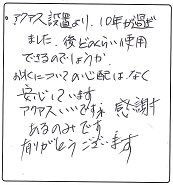 ・アクアス設置より、10年が過ぎ
ました。後どのくらい使用
できるのでしょうか。
お水についての心配はなく
安心しています
アクアスいいですネ 感謝
あるのみです
有りがとうございます